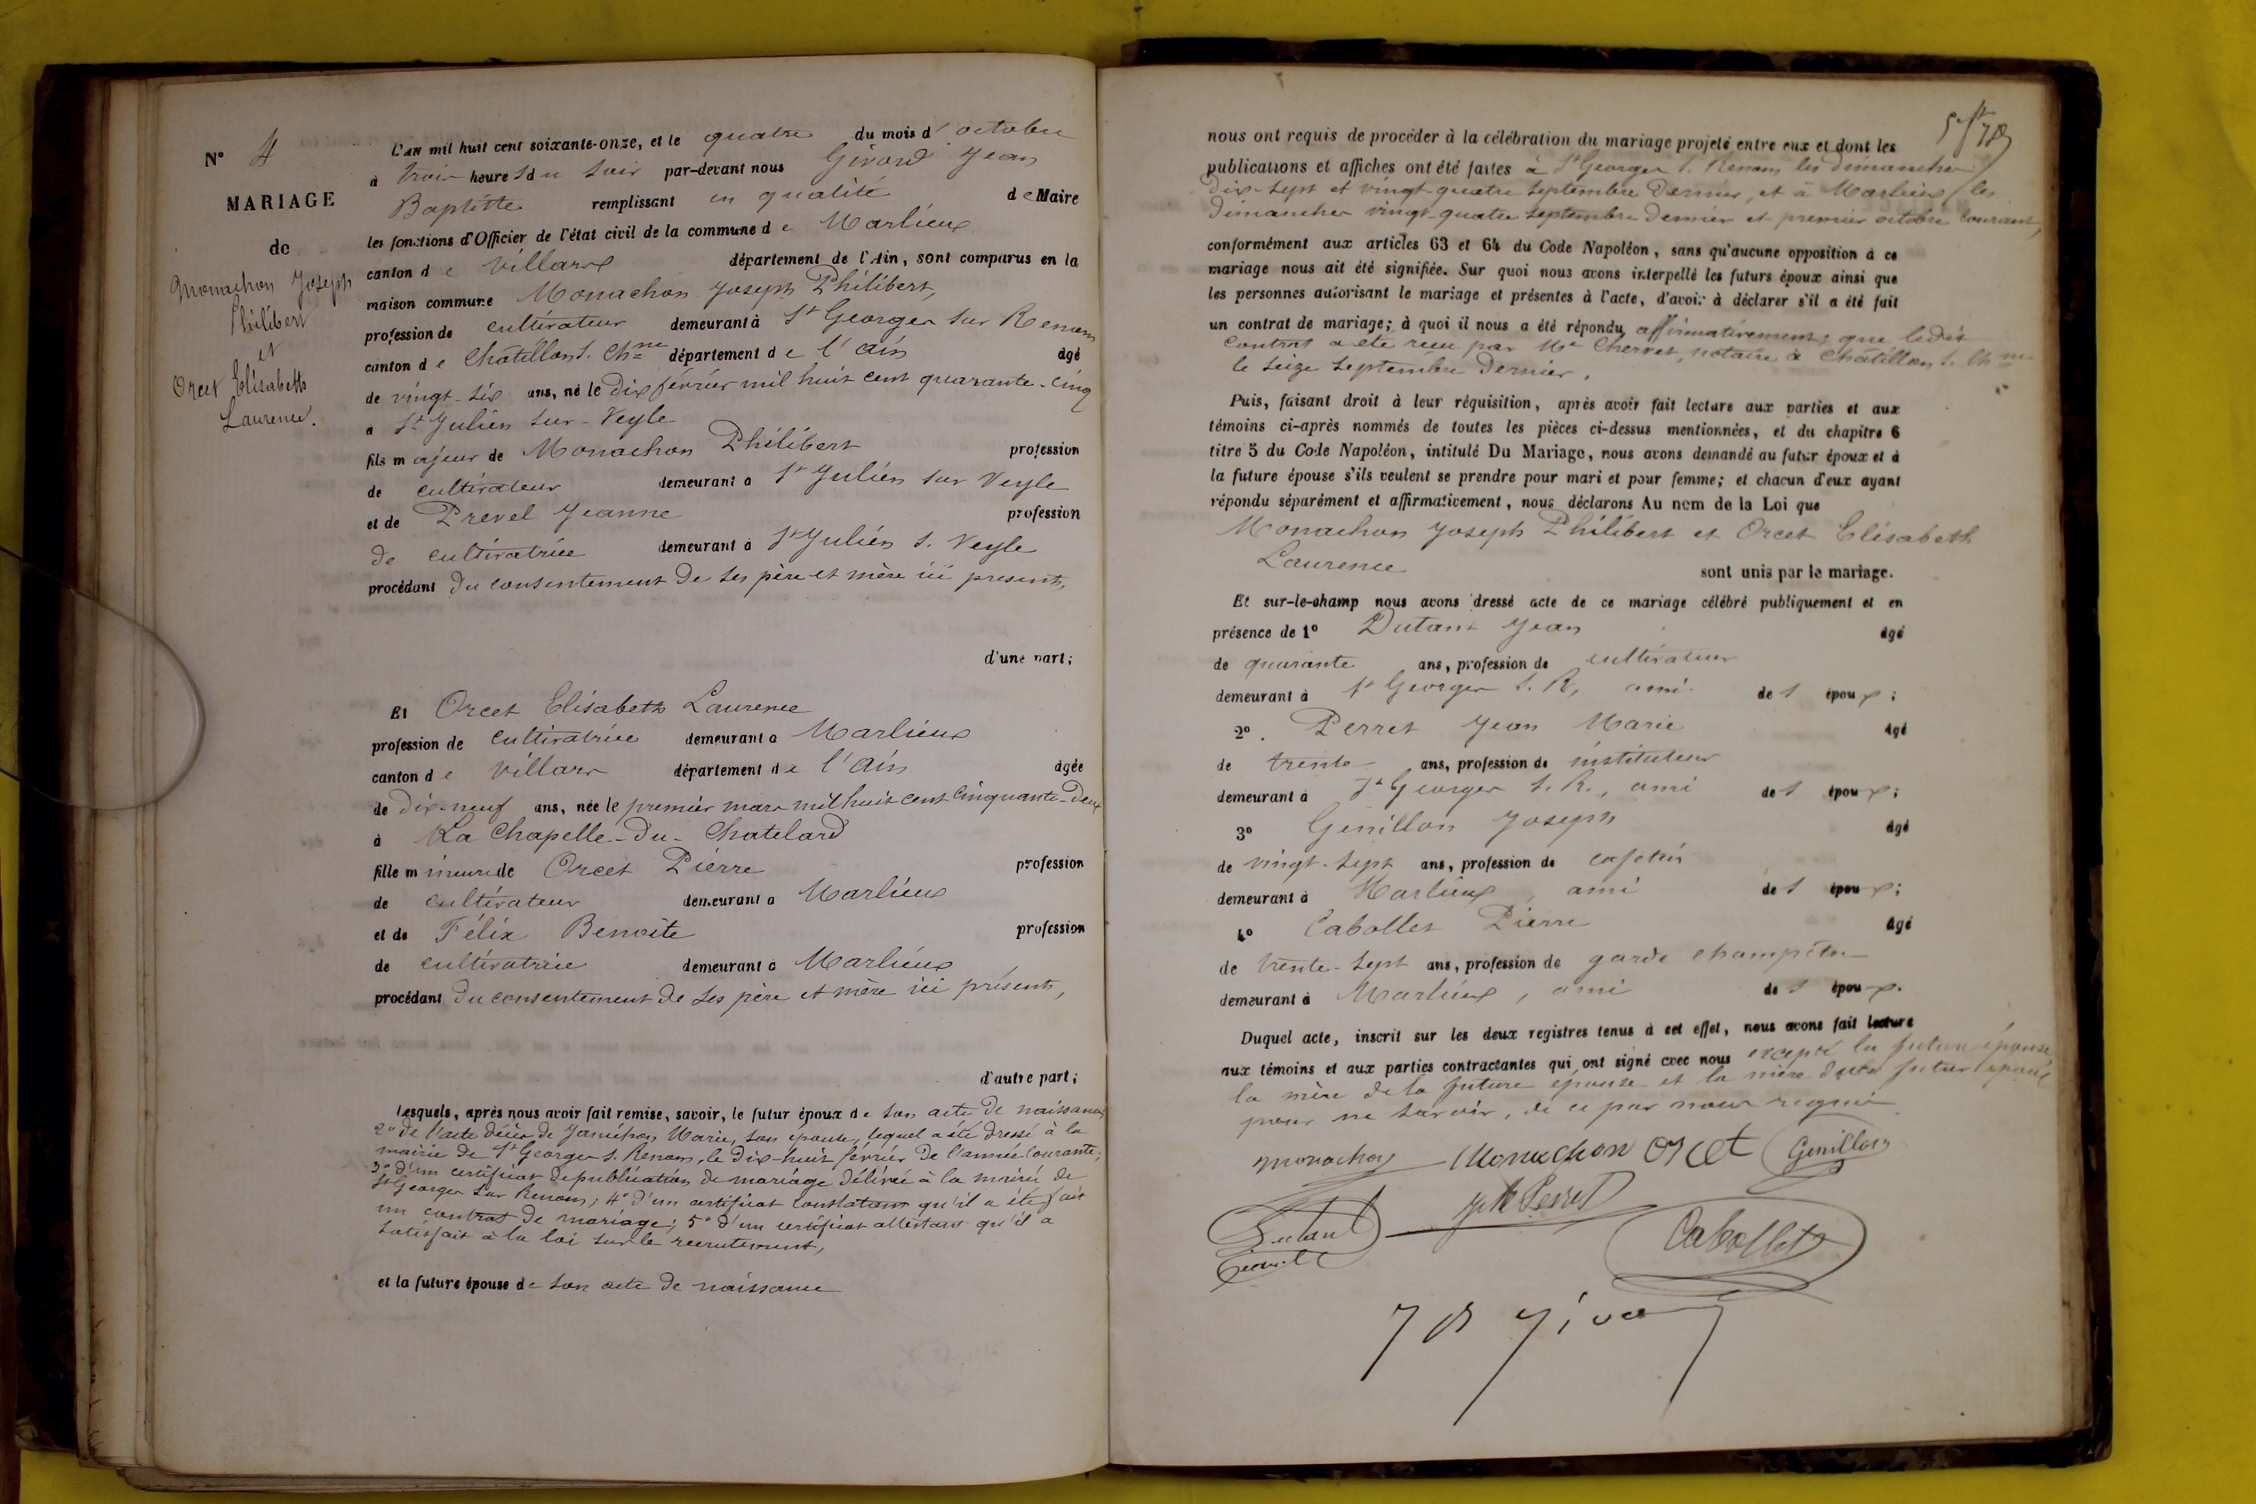 N° 4
MARIAGE
de
Monachon Joseph
Philibert
et
Orcet Elisabeth
Laurence.
L'an mil huit cent soixante-onze, et le quatre du mois d'octobre
à trois heures du soir par-devant nous Girard Jean
Baptiste remplissant en qualité de Maire
les fonctions d'Officier de l'état civil de la commune de Marlieux
canton de Villars département de l'Ain, sont comparus en la
maison commune Monachon Joseph Philibert,
profession de cultivateur demeurant à St Georges sur Renom
canton de Châtillon s. Chne département de l'ain âgé
de vingt-six ans, né le dix février mil huit cent quarante-cinq
à St Julien sur-Veyle
fils majeur de Monachon Philibert profession
de cultivateur demeurant à St Julien sur Veyle
et de Prevel Jeanne profession
de cultivatrice demeurant à St Julien s. Veyle
procédant du consentement de ses père et mère ici présents,
d'une part;
Et Orcet Elisabeth Laurence
profession de cultivatrice demeurant à Marlieux
canton de Villars département de l'ain âgée
de dix-neuf ans, née le premier mars mil huit cent cinquante-deux
à La Chapelle-du-Chatelard
fille mineure de Orcet Pierre profession
de cultivateur demeurant à Marlieux
et de Félix Benoite profession
de cultivatrice demeurant à Marlieux
procédant du consentement de ses père et mère ici présents,
d'autre part;
Lesquels, après nous avoir fait remise, savoir, le futur époux de son acte de naissance
2° de l'acte décès de Marie, son épouse, lequel a été dressé à la
mairie de St Georges s. Renom, le dix-huit février de l'année courante;
3° d'un certificat de publication de mariage délivré à la mairie de
St Georges sur Renom; 4° d'un certificat constatant qu'il a été fait
un contrat de mariage; 5° d'un certificat attestant qu'il a
satisfait à la loi sur le recrutement,
et la future épouse de son acte de naissance
nous ont requis de procéder à la célébration du mariage projeté entre eux et dont les
publications et affiches ont été faites à St Georges s. Renom les dimanches
dix-sept et vingt-quatre septembre dernier, et à Marlieux les
dimanches vingt-quatre septembre dernier et premier octobre courant,
conformément aux articles 63 et 64 du Code Napoléon, sans qu'aucune opposition à ce
mariage nous ait été signifiée. Sur quoi nous avons interpellé les futurs époux ainsi que
les personnes autorisant le mariage et présentes à l'acte, d'avoir à déclarer s'il a été fait
un contrat de mariage; à quoi il nous a été répondu affirmativement; que ledit
contrat a été recu par Me Chervet, notaire à Chatillon s. Chne
le seize septembre dernier.
Puis, faisant droit à leur réquisition, après avoir fait lecture aux parties et aux
témoins ci-après nommés de toutes les pièces ci-dessus mentionnées, et du chapitre 6
titre 5 du Code Napoléon, intitulé Du Mariage, nous avons demandé au futur époux et à
la future épouse s'ils veulent se prendre pour mari et pour femme; et chacun d'eux ayant
répondu séparément et affirmativement, nous déclarons Au nom de la Loi que
Monachon Joseph Philibert et Orcet Elisabeth
Laurence sont unis par le mariage.
Et sur-le-champ nous avons dressé acte de ce mariage célébré publiquement et en
présence de 1° Dutant Jean âgé
de quarante ans, profession de cultivateur
demeurant à St Georges s. R, ami des époux;
2°. Perret Jean Marie âgé
de trente ans, profession de instituteur
demeurant à St Georges s. R., ami des époux;
3° Genillon Joseph âgé
de vingt-sept ans, profession de
demeurant à Marlieux, ami des époux;
4° Cabollet Pierre âgé
de trente-sept ans, profession de garde champêtre
demeurant à Marlieux, ami des époux.
Duquel acte, inscrit sur les deux registres tenus à cet effet, nous avons fait lecture
aux témoins et aux parties contractantes qui ont signé avec nous excepté la future épouse,
la mère de la future épouse et la mère du futur époux
pour ne savoir, de ce par nous requis
monachon Monachon Orcet Genillon
Dutant JM Perret
Cabollet